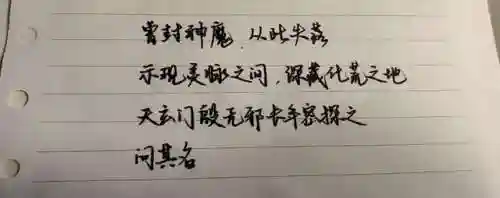 曾封神魔,从此失落
示现灵脉之间,深藏化荒之地
天玄门殷无邪长年密探之
问其名